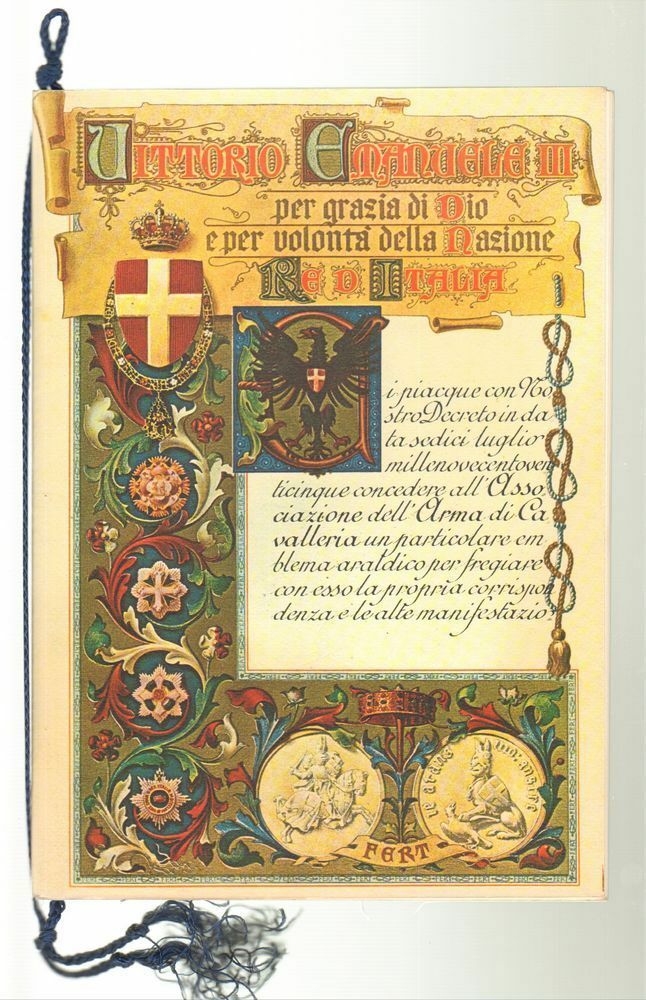 VITTORIO EMANUELE III
per grazia di Dio
e per volontà della Nazione
RE D ITALIA
Ci piacque con No
stro Decreto in da
ta sedici luglio
millenovecentoven
ticinque concedere all'Asso
ciazione dell'Arma di Ca
valleria un particolare em
blema araldico per fregiare
con esso la propria corrispon
denza e le alte manifestazio
FERT